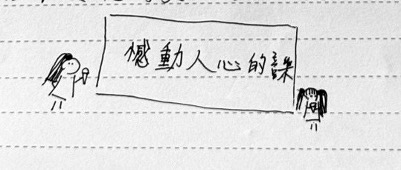 撼動人心的課